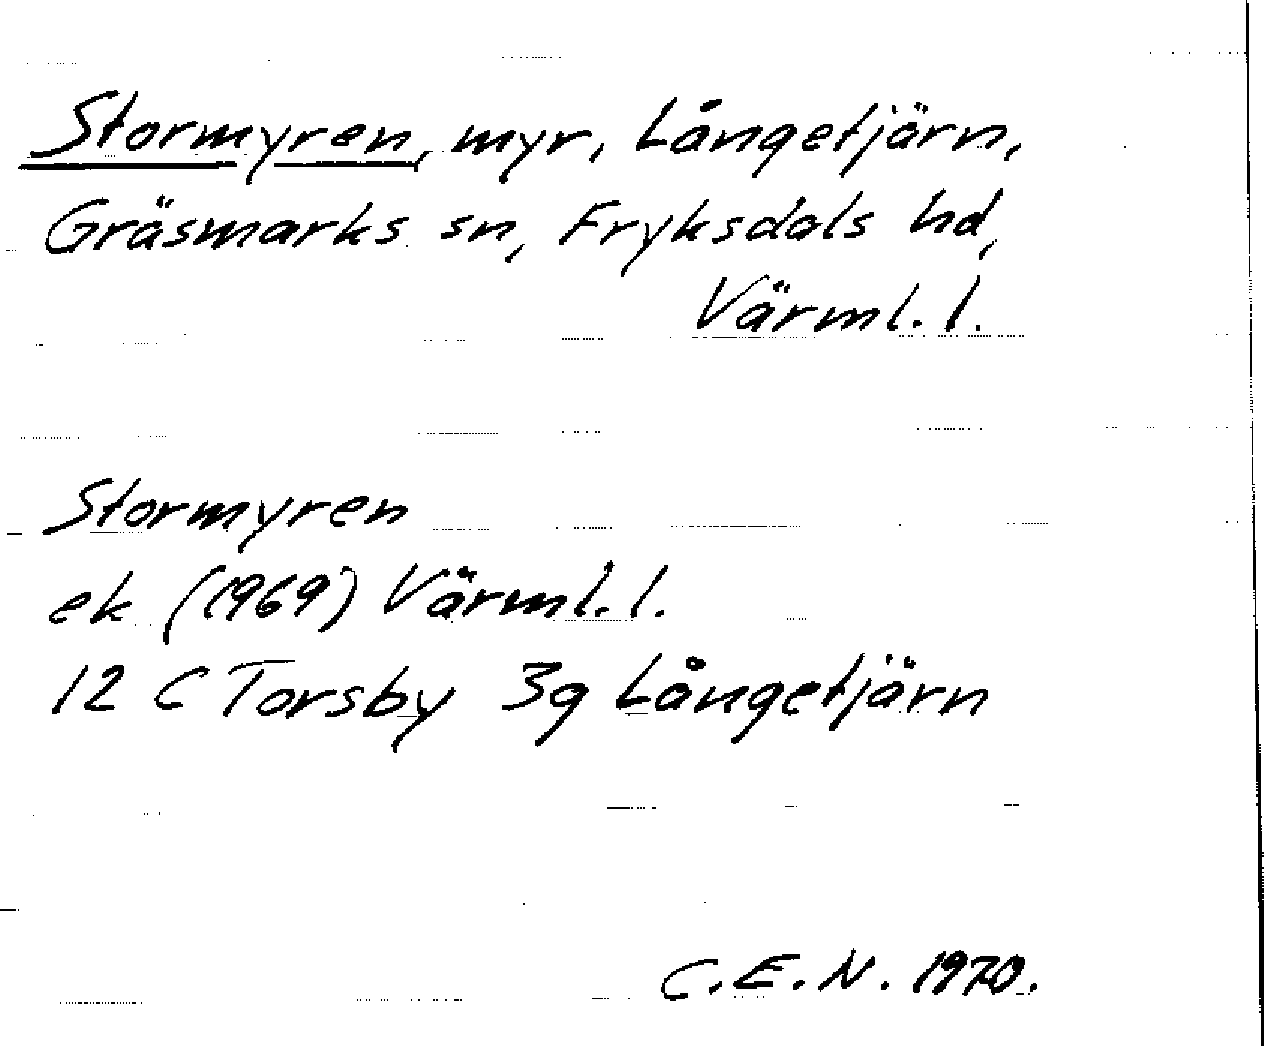 Stormyren, myr, Långetjärn,
Gräsmarks sn, Fryksdals hd,
Värml. l.
Stormyren
ek (1969) Värml. l.
12 C Torsby 3g Långetjärn
C.E.N. 1970.